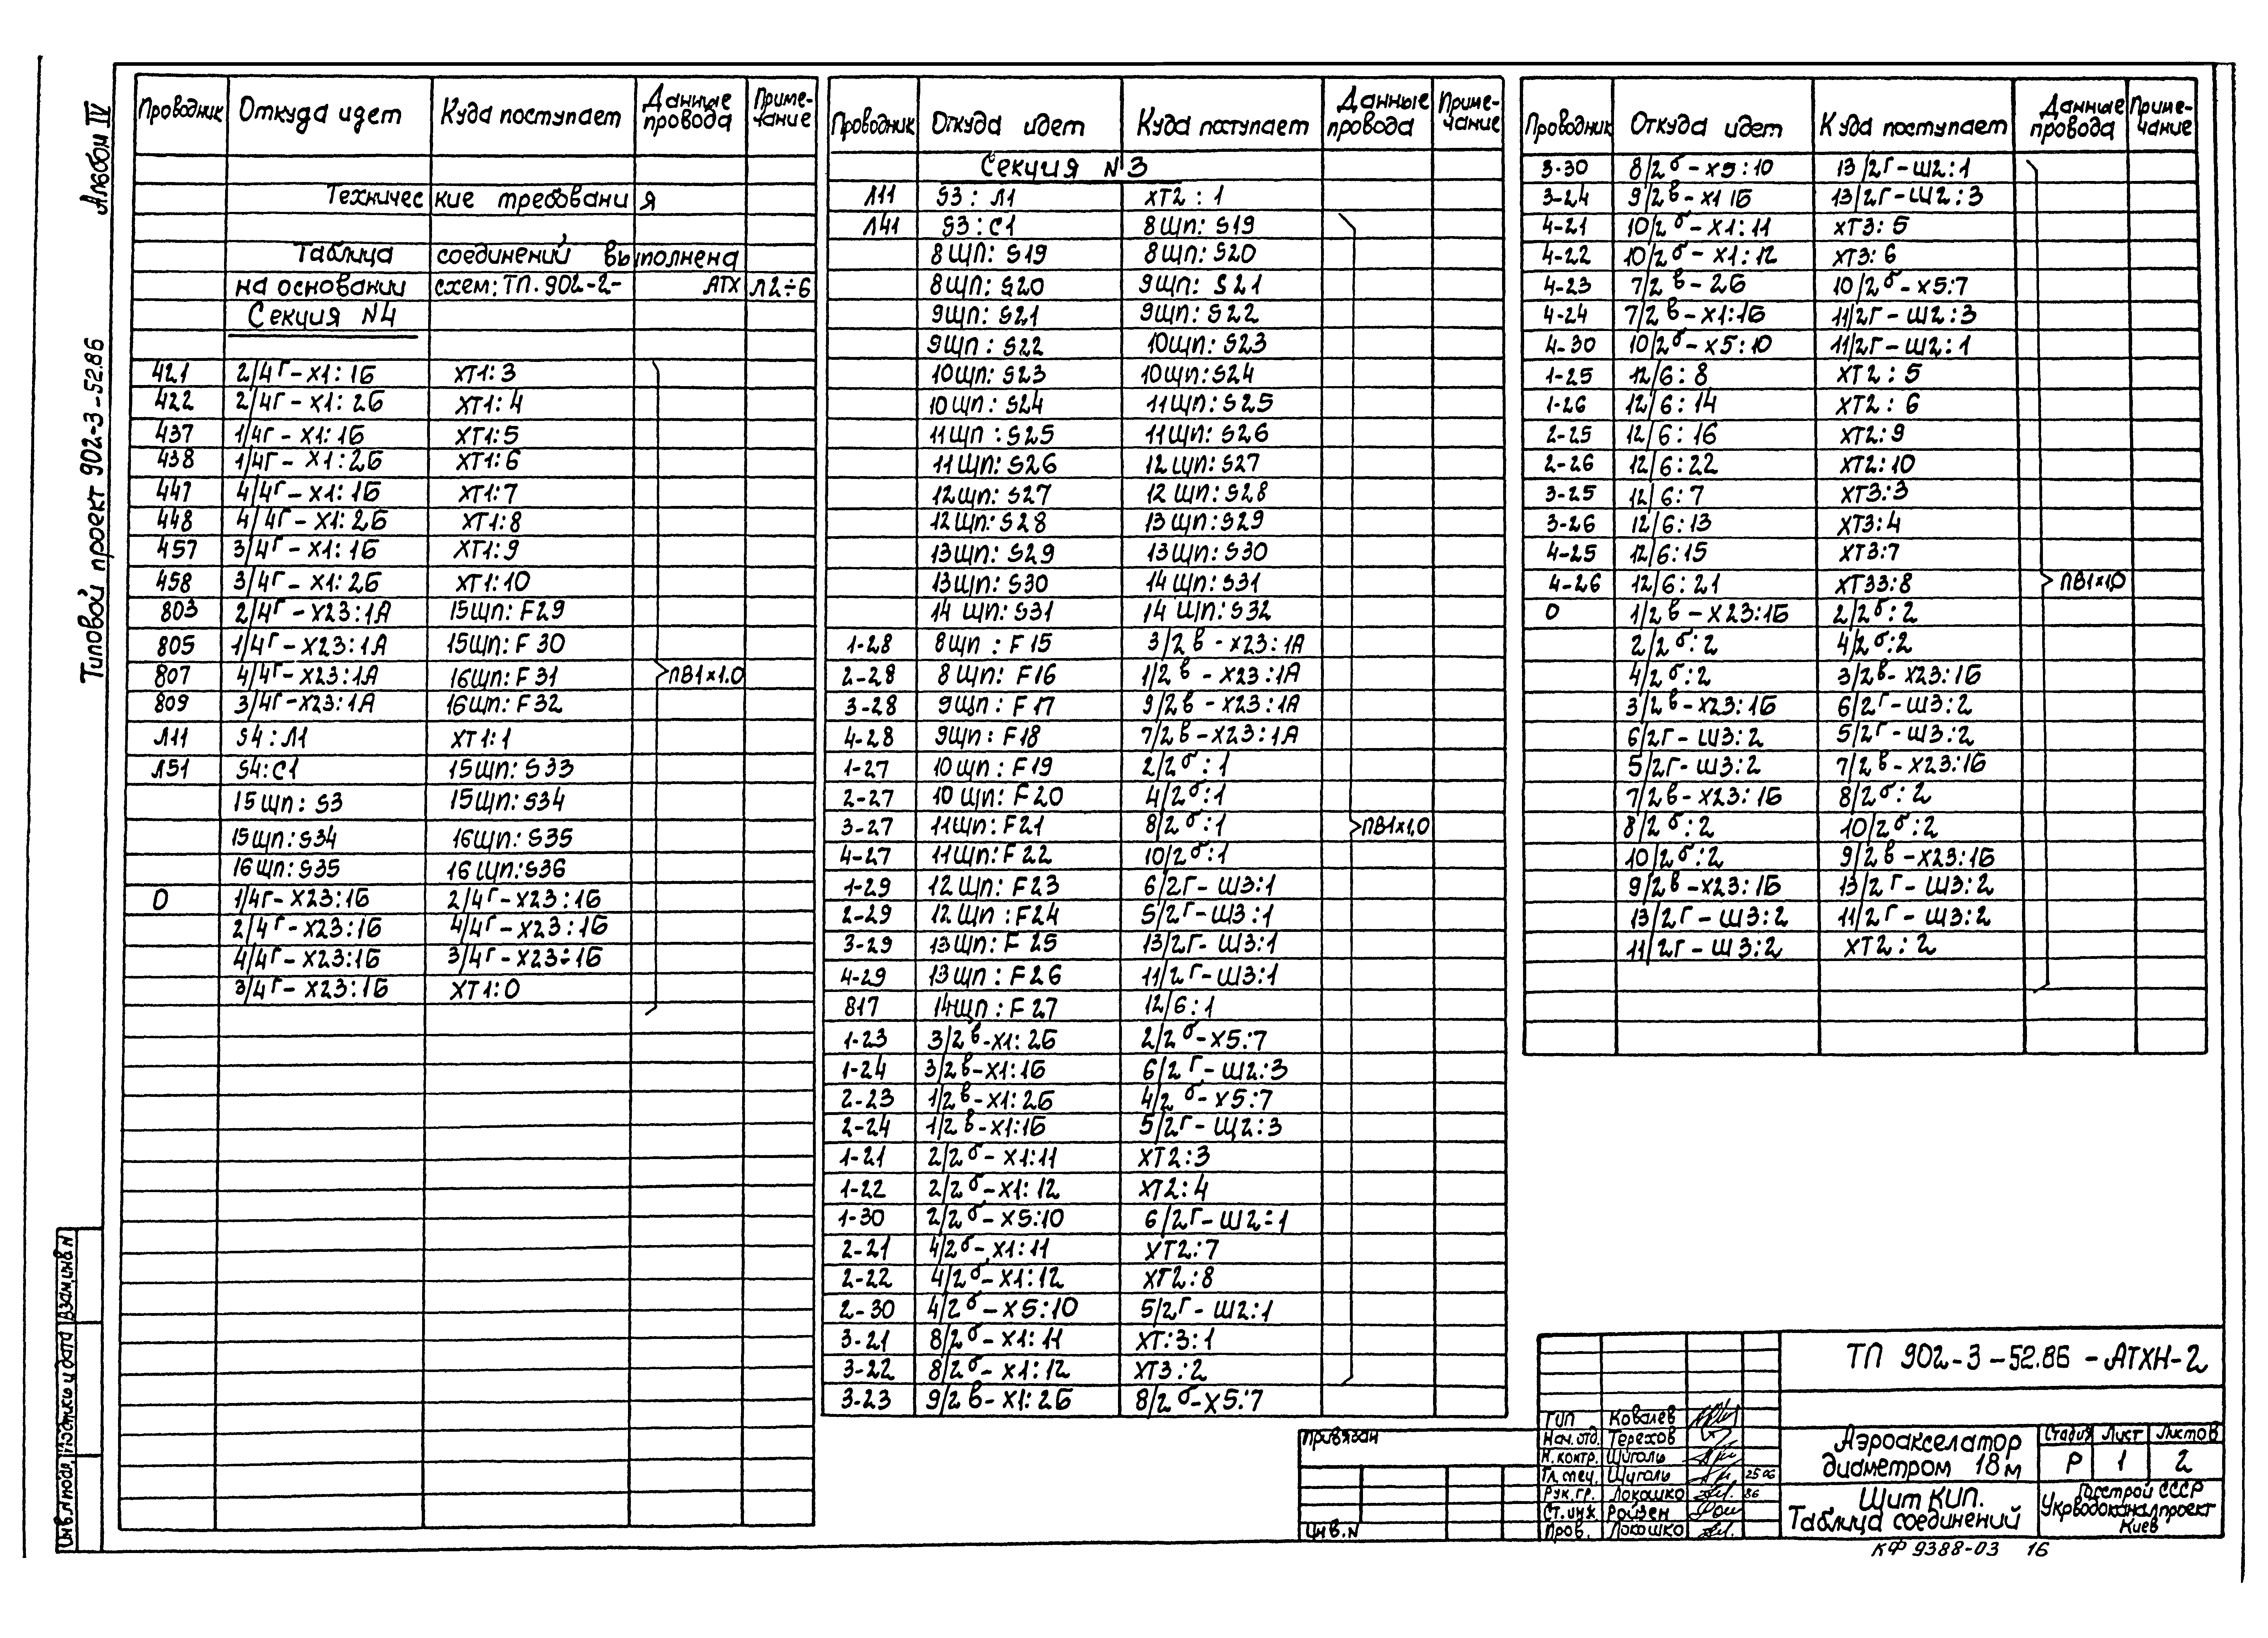 Альбом IV
Типовой проект 902-3-52.86
Проводник | Откуда идет | Куда поступает | Данные провода | Приме-чание
Технические требования
Таблица соединений выполнена
на основании схем: ТП.902-2- АТХ л2÷6
Секция N4
421 | 2/4г-х1:1Б | ХТ1:3
422 | 2/4г-х1:2Б | ХТ1:4
437 | 1/4г-х1:1Б | ХТ1:5
438 | 1/4г-х1:2Б | ХТ1:6
447 | 4/4г-х1:1Б | ХТ1:7
448 | 4/4г-х1:2Б | ХТ1:8
457 | 3/4г-х1:1Б | ХТ1:9
458 | 3/4г-х1:2Б | ХТ1:10
803 | 2/4г-х23:1А | 15щп:F29
805 | 1/4г-х23:1А | 15щп:F30
807 | 4/4г-х23:1А | 16щп:F31 | ПВ1х1.0
809 | 3/4г-х23:1А | 16щп:F32
Л11 | S4:Л1 | ХТ1:1
Л51 | S4:С1 | 15щп:S33
15щп:S3 | 15щп:S34
15щп:S34 | 16щп:S35
16щп:S35 | 16щп:S36
0 | 1/4г-х23:1Б | 2/4г-х23:1Б
2/4г-х23:1Б | 4/4г-х23:1Б
4/4г-х23:1Б | 3/4г-х23:1Б
3/4г-х23:1Б | ХТ1:0
Проводник | Откуда идет | Куда поступает | Данные провода | Приме-чание
Секция N3
Л11 | S3:Л1 | ХТ2:1
Л41 | S3:С1 | 8щп:S19
8щп:S19 | 8щп:S20
8щп:S20 | 9щп:S21
9щп:S21 | 9щп:S22
9щп:S22 | 10щп:S23
10щп:S23 | 10щп:S24
10щп:S24 | 11щп:S25
11щп:S25 | 11щп:S26
11щп:S26 | 12щп:S27
12щп:S27 | 12щп:S28
12щп:S28 | 13щп:S29
13щп:S29 | 13щп:S30
13щп:S30 | 14щп:S31
14щп:S31 | 14щп:S32
1-28 | 8щп:F15 | 3/2в-х23:1А
2-28 | 8щп:F16 | 1/2в-х23:1А
3-28 | 9щп:F17 | 9/2в-х23:1А
4-28 | 9щп:F18 | 7/2в-х23:1А
1-27 | 10щп:F19 | 2/2б:1
2-27 | 10щп:F20 | 4/2б:1
3-27 | 11щп:F21 | 8/2б:1 | ПВ1х1,0
4-27 | 11щп:F22 | 10/2б:1
1-29 | 12щп:F23 | 6/2г-Ш3:1
2-29 | 12щп:F24 | 5/2г-Ш3:1
3-29 | 13щп:F25 | 13/2г-Ш3:1
4-29 | 13щп:F26 | 11/2г-Ш3:1
817 | 14щп:F27 | 12/6:1
1-23 | 3/2в-х1:2Б | 2/2б-х5:7
1-24 | 3/2в-х1:1Б | 6/2г-Ш2:3
2-23 | 1/2в-х1:2Б | 4/2б-х5:7
2-24 | 1/2в-х1:1Б | 5/2г-Щ2:3
1-21 | 2/2б-х1:11 | ХТ2:3
1-22 | 2/2б-х1:12 | ХТ2:4
1-30 | 2/2б-х5:10 | 6/2г-Ш2:1
2-21 | 4/2б-х1:11 | ХТ2:7
2-22 | 4/2б-х1:12 | ХТ2:8
2-30 | 4/2б-х5:10 | 5/2г-Ш2:1
3-21 | 8/2б-х1:11 | ХТ:3:1
3-22 | 8/2б-х1:12 | ХТ3:2
3-23 | 9/2в-х1:2Б | 8/2б-х5:7
Проводник | Откуда идет | Куда поступает | Данные провода | Приме-чание
3-30 | 8/2б-х5:10 | 13/2г-Ш2:1
3-24 | 9/2в-х1 1Б | 13/2г-Ш2:3
4-21 | 10/2б-х1:11 | ХТ3:5
4-22 | 10/2б-х1:12 | ХТ3:6
4-23 | 7/2в-2Б | 10/2б-х5:7
4-24 | 7/2в-х1:1Б | 11/2г-Ш2:3
4-30 | 10/2б-х5:10 | 11/2г-Ш2:1
1-25 | 12/6:8 | ХТ2:5
1-26 | 12/6:14 | ХТ2:6
2-25 | 12/6:16 | ХТ2:9
2-26 | 12/6:22 | ХТ2:10
3-25 | 12/6:7 | ХТ3:3
3-26 | 12/6:13 | ХТ3:4
4-25 | 12/6:15 | ХТ3:7
4-26 | 12/6:21 | ХТ33:8 | ПВ1х1,0
0 | 1/2в-х23:1Б | 2/2б:2
2/2б:2 | 4/2б:2
4/2б:2 | 3/2в-х23:1Б
3/2в-х23:1Б | 6/2г-Ш3:2
6/2г-Ш3:2 | 5/2г-Ш3:2
5/2г-Ш3:2 | 7/2в-х23:1Б
7/2в-х23:1Б | 8/2б:2
8/2б:2 | 10/2б:2
10/2б:2 | 9/2в-х23:1Б
9/2в-х23:1Б | 13/2г-Ш3:2
13/2г-Ш3:2 | 11/2г-Ш3:2
11/2г-Ш3:2 | ХТ2:2
Инв.N подл. Подпись и дата Взам.инв.N
Привязан
Инв.N
ТП 902-3-52.86-АТХН-2
ГИП Ковалев
Нач.отд. Терехов
Н.контр. Шуголь
Гл.спец. Шуголь 25 06
Рук.гр. Локошко 86
Ст.инж. Ройзен
Пров. Локошко
Аэроакселатор
диаметром 18м
Стадия Лист Листов
Р 1 2
Щит КИП.
Таблица соединений
Госстрой СССР
Укрводоканалпроект
Киев
КФ 9388-03 16